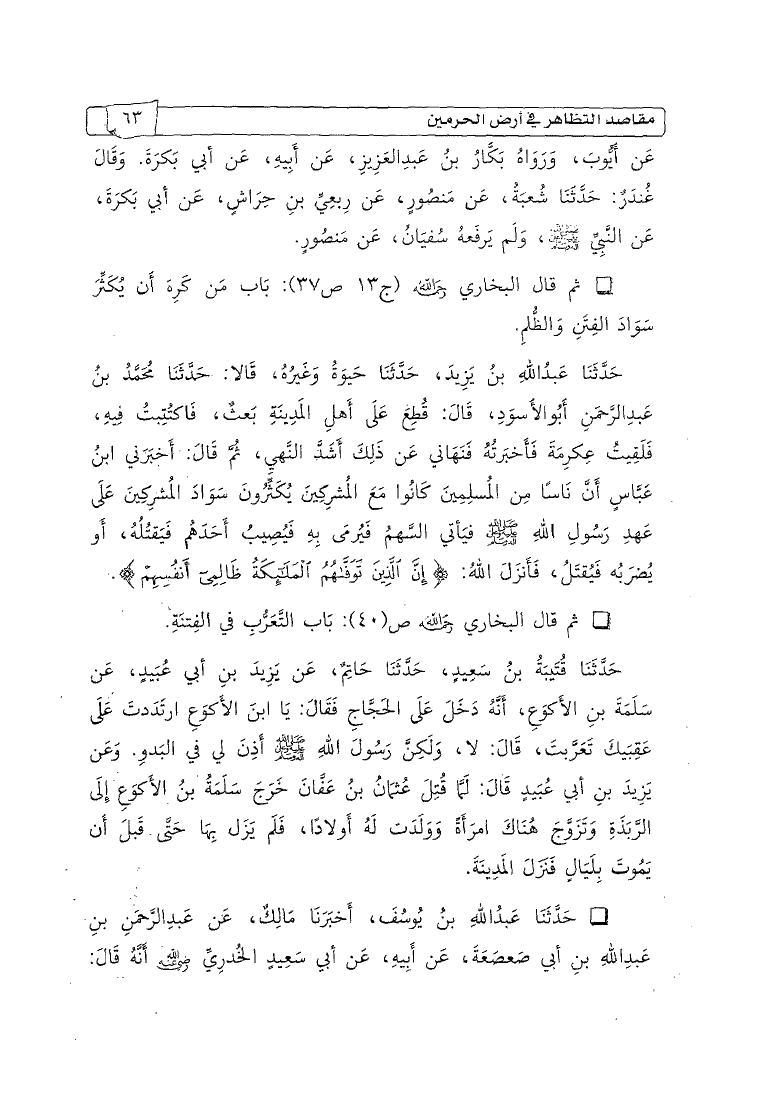 مقاصد التظاهر في أرض الحرمين
٦٣
عَن أَيُّوبَ، وَرَوَاهُ بَكَّارُ بنُ عَبدِالعَزِيزِ، عَن أَبِيهِ، عَن أَبي بَكرَةَ. وَقَالَ
غُندَرٌ: حَدَّثَنَا شُعبَةُ، عَن مَنصُورٍ، عَن رِبعِيِّ بنِ حِرَاشٍ، عَن أَبي بَكرَةَ،
عَن النَّبِيِّ ﷺ، وَلَم يَرفَعهُ سُفيَانُ، عَن مَنصُورٍ.
❏ ثم قال البخاري رَحِمَهُ اللهُ (ج١٣ ص٣٧): بَاب مَن كَرِهَ أَن يُكَثِّرَ
سَوَادَ الفِتَنِ وَالظُّلمِ.
حَدَّثَنَا عَبدُاللهِ بنُ يَزِيدَ، حَدَّثَنَا حَيوَةُ وَغَيرُهُ، قَالا: حَدَّثَنَا مُحَمَّدُ بنُ
عَبدِالرَّحمَنِ أَبُوالأَسوَدِ، قَالَ: قُطِعَ عَلَى أَهلِ المَدِينَةِ بَعثٌ، فَاكتُتِبتُ فِيهِ،
فَلَقِيتُ عِكرِمَةَ فَأَخبَرتُهُ فَنَهَاني عَن ذَلِكَ أَشَدَّ النَّهيِ، ثُمَّ قَالَ: أَخبَرَني ابنُ
عَبَّاسٍ أَنَّ نَاسًا مِن المُسلِمِينَ كَانُوا مَعَ المُشرِكِينَ يُكَثِّرُونَ سَوَادَ المُشرِكِينَ عَلَى
عَهدِ رَسُولِ اللهِ ﷺ فَيَأتي السَّهمُ فَيُرمَى بِهِ فَيُصِيبُ أَحَدَهُم فَيَقتُلُهُ، أَو
يُضرَبُه فَيُقتَلُ، فَأَنزَلَ اللهُ: ﴿إِنَّ ٱلَّذِينَ تَوَفَّىٰهُمُ ٱلْمَلَـٰٓئِكَةُ ظَالِمِىٓ أَنفُسِهِمْ﴾.
❏ ثم قال البخاري رَحِمَهُ اللهُ ص(٤٠): بَاب التَّعَرُّبِ في الفِتنَةِ.
حَدَّثَنَا قُتَيبَةُ بنُ سَعِيدٍ، حَدَّثَنَا حَاتِمٌ، عَن يَزِيدَ بنِ أَبي عُبَيدٍ، عَن
سَلَمَةَ بنِ الأَكوَعِ، أَنَّهُ دَخَلَ عَلَى الحَجَّاجِ فَقَالَ: يَا ابنَ الأَكوَعِ ارتَدَدتَ عَلَى
عَقِبَيكَ تَعَرَّبتَ، قَالَ: لا، وَلَكِنَّ رَسُولَ اللهِ ﷺ أَذِنَ لي في البَدوِ. وَعَن
يَزِيدَ بنِ أَبي عُبَيدٍ قَالَ: لَمَّا قُتِلَ عُثمَانُ بنُ عَفَّانَ خَرَجَ سَلَمَةُ بنُ الأَكوَعِ إِلَى
الرَّبَذَةِ وَتَزَوَّجَ هُنَاكَ امرَأَةً وَوَلَدَت لَهُ أَولادًا، فَلَم يَزَل بِهَا حَتَّى قَبلَ أَن
يَمُوتَ بِلَيَالٍ فَنَزَلَ المَدِينَةَ.
❏ حَدَّثَنَا عَبدُاللهِ بنُ يُوسُفَ، أَخبَرَنَا مَالِكٌ، عَن عَبدِالرَّحمَنِ بنِ
عَبدِاللهِ بنِ أَبي صَعصَعَةَ، عَن أَبِيهِ، عَن أَبي سَعِيدٍ الخُدرِيِّ رَضِيَ اللهُ عَنهُ أَنَّهُ قَالَ: